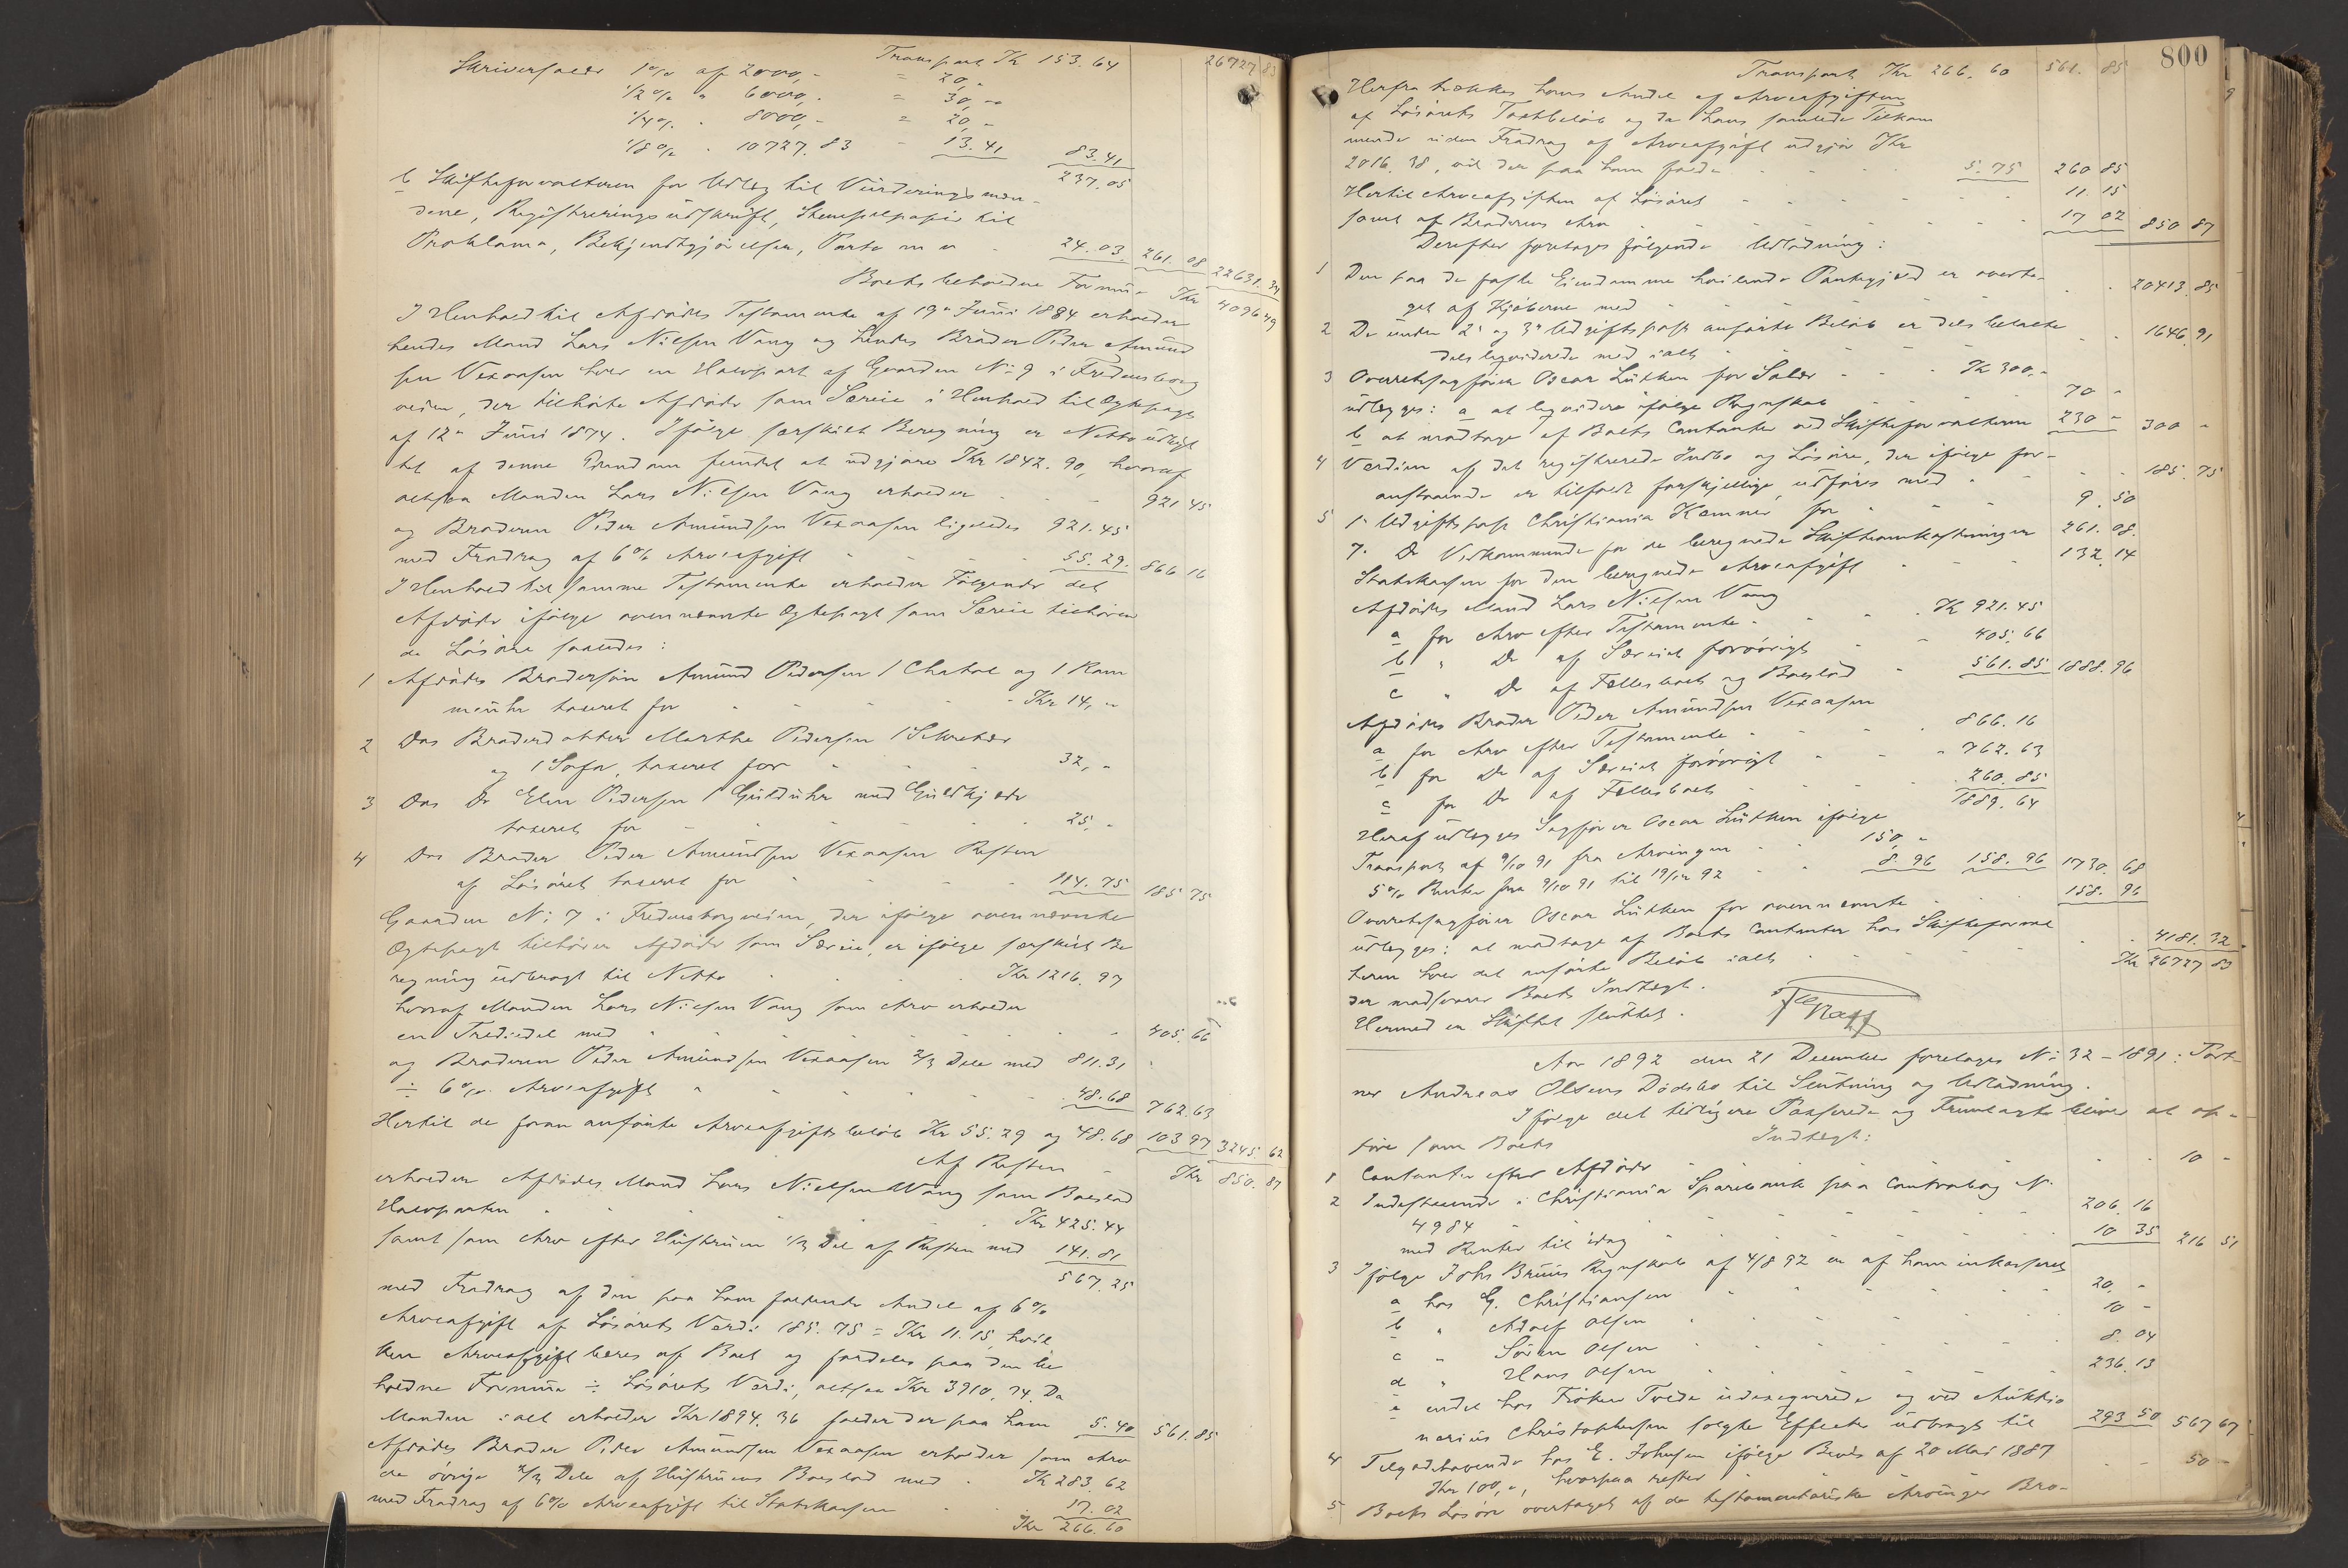 Transport Kr 153.64 26727 83
Skriversalær 1% af 2000,- = 20,-
1/2% " 6000,- = 30,-
1/4% " 8000,- = 20,-
1/8% " 10727.83 - 13.41 83.41
237.05
b Skifteforvalteren for Udlæg til Vurderingsmæn-
dene, Registreringsudskrift, Stempelpapir til
Proklama, Bekjendtgjörelser, Porto m m 24.03. 261.08 22631.34
Boets beholdne Formue Kr 4096 49
I Henhold til Afdödes Testamente af 19de Juni 1884 erholder
hendes Mand Lars Nielsen Vang og hendes Broder Peder Amund
sen Vexaasen hver en Halvpart af Gaarden No 9 i Fredensborg
veien, der tilhörte Afdöde som Særeie i Henhold til Ægtepagt
af 12te Juni 1874. Ifölge særskilt Beregning er Nettoudbyt
tet af denne Eiendom fundet at udgjöre Kr 1842.90, hvoraf
altsaa Manden Lars Nielsen Vang erholder 921 45
og Broderen Peder Amundsen Vexaasen ligeledes 921.45
med Fradrag af 6% Arveafgift 55.29. 866 16
I Henhold til samme Testamente erholder Fölgende det
Afdöde ifölge ovennævnte Ægtepagt som Særeie tilhören
de Lösöre saaledes:
1 Afdödes Brodersön Amund Pedersen 1 Chatol og 1 Kom
meuhr taxeret for - Kr 14,-
2 Dos Broderdatter Marthe Pedersen 1 Sekretær
og 1 Sofa, taxeret for 32,-
3 Dos Do Elen Pedersen 1 Gulduhr med Guldkjæde
taxeret for 25,-
4 Dos Broder Peder Amundsen Vexaasen Resten
af Lösöret taxeret for 114.75 185 75
Gaarden No 7 i Fredensborgveien, der ifölge ovennævnte
Ægtepagt tilhörer Afdöde som Særeie, er ifölge særskilt Be
regning udbragt til Netto Kr 1216.97
hvoraf Manden Lars Nielsen Vang som Arv erholder
en Trediedel med 405.66
og Broderen Peder Amundsen Vexaasen 2/3 Dele med 811.31
÷ 6% Arveafgift 48.68 762.63
Hertil de foran anförte Arveafgiftsbelöb Kr 55.29 og 48.68 103 97 3245 62
Af Resten Kr 850.87
erholder Afdödes Mand Lars Nielsen Vang som Boeslod
Halvparten Kr 425.44
samt som Arv efter Hustruen 1/3 Del af Resten med 141.81
567.25
med Fradrag af den paa ham faldende Andel af 6%
Arveafgift af Lösörets Værdi 185.75 = Kr 11.15, hvil
ken Arveafgift bæres af Boet og fordeles paa den be
holdne Formue ÷ Lösörets Værdi, altsaa Kr 3910.74. Da
Manden i alt erholder Kr 1894.36 falder der paa ham 5.40 561.85
Afdödes Broder Peder Amundsen Vexaasen erholder som Arv
de övrige 2/3 Dele af Hustruens Boeslod med Kr 283.62
med Fradrag af 6% Arveafgift til Statskassen 17.02
Kr 266.60
800
Transport Kr 266.60 561.85
Herfra trækkes hans Andel af Arveafgiften
af Lösörets Taxtbelöb og da hans samlede Tilkom
mende uden Fradrag af Arveafgift udgjör Kr
2016.38, vil der paa ham falde 5.75 260 85
Hertil Arveafgiften af Lösöret 11.15
samt af Broderens Arv 17 02 850 87
Derefter foretages fölgende Udlodning:
1 Den paa de faste Eiendomme heftende Pantegjæld er overta-
get af Kjöberne med 20413.85
2 De under 2 og 3 Udgiftspost anförte Belöb er dels betalte
dels likviderede med ialt 1646.91
3 Overretssagförer Oscar Lütken for Salær Kr 300,-
udlægges: a at likvidere ifölge Regnskab 70 -
b at modtage af Boets Contanter ved Skifteforvalteren 230 - 300 -
4 Værdien af det registrerede Indbo og Lösöre, der ifölge for-
anstaaende er tilfaldt forskjellige, udföres med 185.75
5 1. Udgiftspost Christiania Kæmner for 9.50
7. Do Vedkommende for de beregnede Skifteomkostninger 261.08.
Statskassen for den beregnede Arveafgift 132.14
Afdödes Mand Lars Nielsen Vang
a for Arv efter Testamente Kr 921.45
b " Do af Særeiet forövrigt 405.66
c " Do af Fællesboet og Boeslod 561.85 1888.96
Afdödes Broder Peder Amundsen Vexaasen
a for Arv efter Testamente 866.16
b for Do af Særeiet forövrigt 762.63
c for Do af Fællesboet 260.85
1889.64
Heraf udlægges Sagförer Oscar Lütken ifölge
Transport af 9/10 91 fra Arvingen 150,-
5% Renter fra 9/10 91 til 19/12 92 8.96 158.96 1730.68
Overretssagförer Oscar Lütken for ovennævnte 158.96
udlægges: at modtage af Boets Contanter hos Skifteforval
teren hver det anförte Belöb ialt 4181.32
der modsvarer Boets Indtægt. Kr 26727 83
Hermed er Skiftet sluttet.
Aar 1892 den 21 December foretages No 32 - 1891: Port-
ner Andreas Olsens Dödsbo til Slutning og Udlodning.
Ifölge det tidligere Passerede og Fremlagte bliver at op-
före som Boets Indtægt:
1 Contanter efter Afdöde 10 -
2 Indestaaende i Christiania Sparebank paa Contrabog No
4984 206.16
med Renter til idag 10 35 216 51
3 Ifölge Johs Bruns Regnskab af 4/8 92 er af ham inkasseret
a hos G. Christiansen 20,-
b " Adolf Olsen 10 -
c " Sören Olsen 8.04
d " Hans Olsen 236.13
e endel hos Fröken Tvede udexeqverede og ved Auktio
narius Christophersen solgte Effecter udbragt til 293 50 567 67
4 Tilgodehavende hos E. Johnsen ifölge Bevis af 20 Mai 1887
Kr 100,-, hvorpaa rester 50 -
5 Boets Lösöre overtaget af de testamentariske Arvinger Bro-